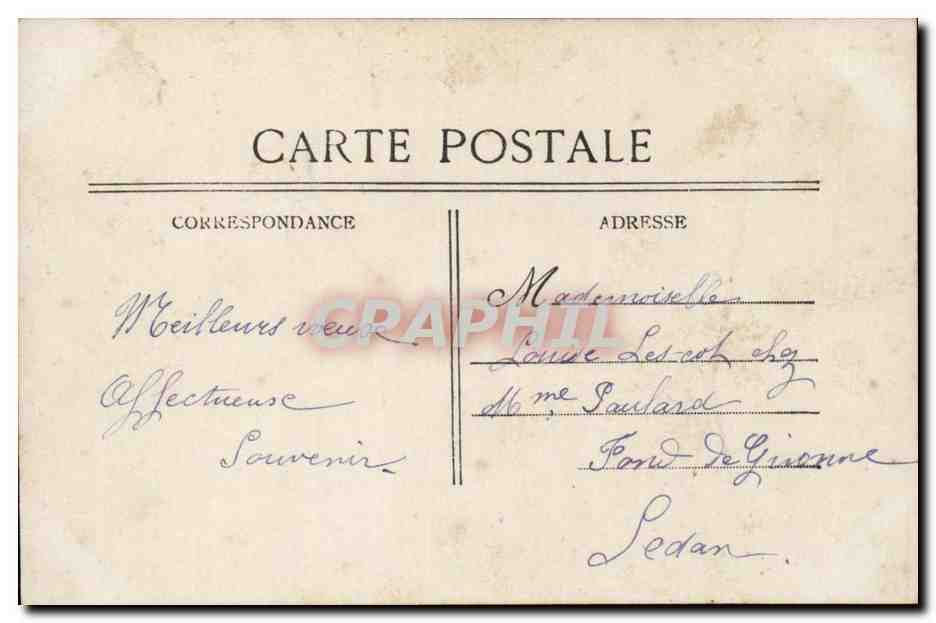 CARTE POSTALE
CORRESPONDANCE
ADRESSE
Meilleurs vœux
Affectueuse
Souvenir
Mademoiselle
Louise Lescot chez
Mme Paulard
Fond de Givonne
Sedan.
CRAPHIL